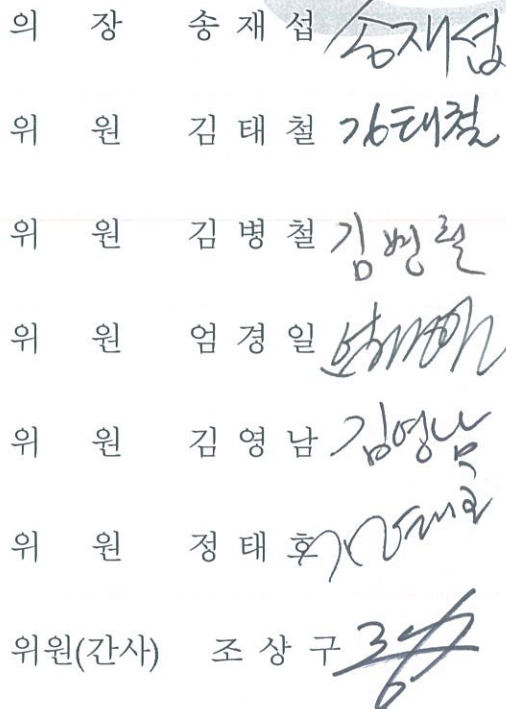 의 장 송 재 섭 송재섭
위 원 김 태 철 김태철
위 원 김 병 철 김병철
위 원 엄 경 일
위 원 김 영 남 김영남
위 원 정 태 호
위원(간사) 조 상 구